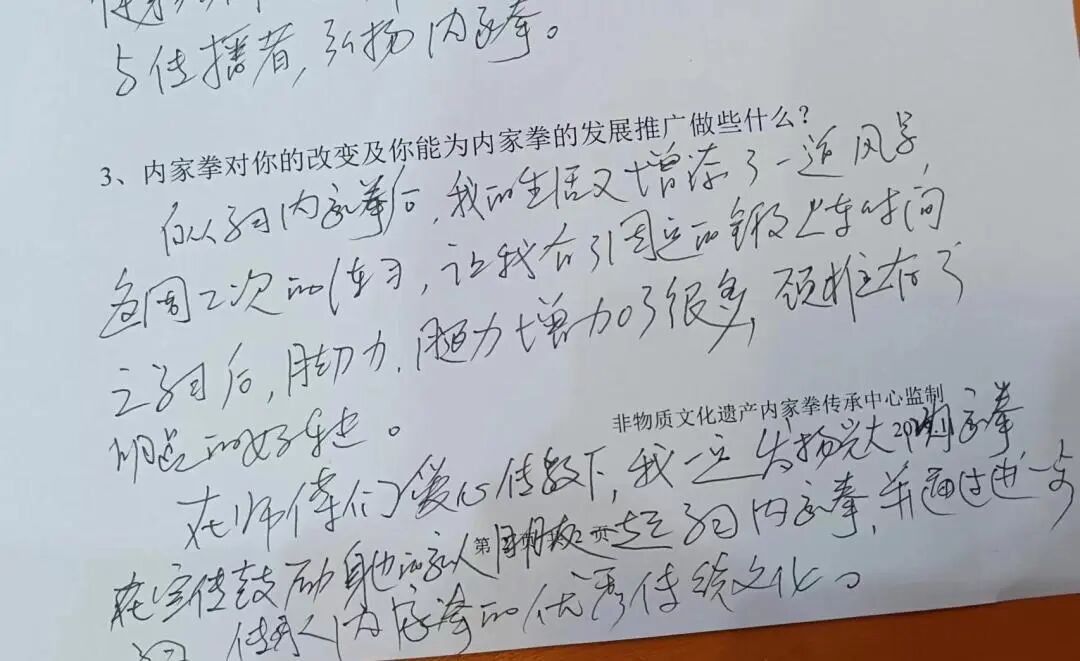 与传播者,弘扬内家拳。
3、内家拳对你的改变及你能为内家拳的发展推广做些什么?
自从习内家拳后,我的生活又增添了一道风景,
每周二次的练习,让我有了固定的锻炼时间
之习后,脚力,腿力增加了很多,颈椎有了
明显的好转。
非物质文化遗产内家拳传承中心监制
在师傅们爱心传教下,我一定发扬光大内家拳
第 2 页
在宣传鼓励身边的家人朋友一起习内家拳,并通过进一步
传承内家拳的优秀传统文化。